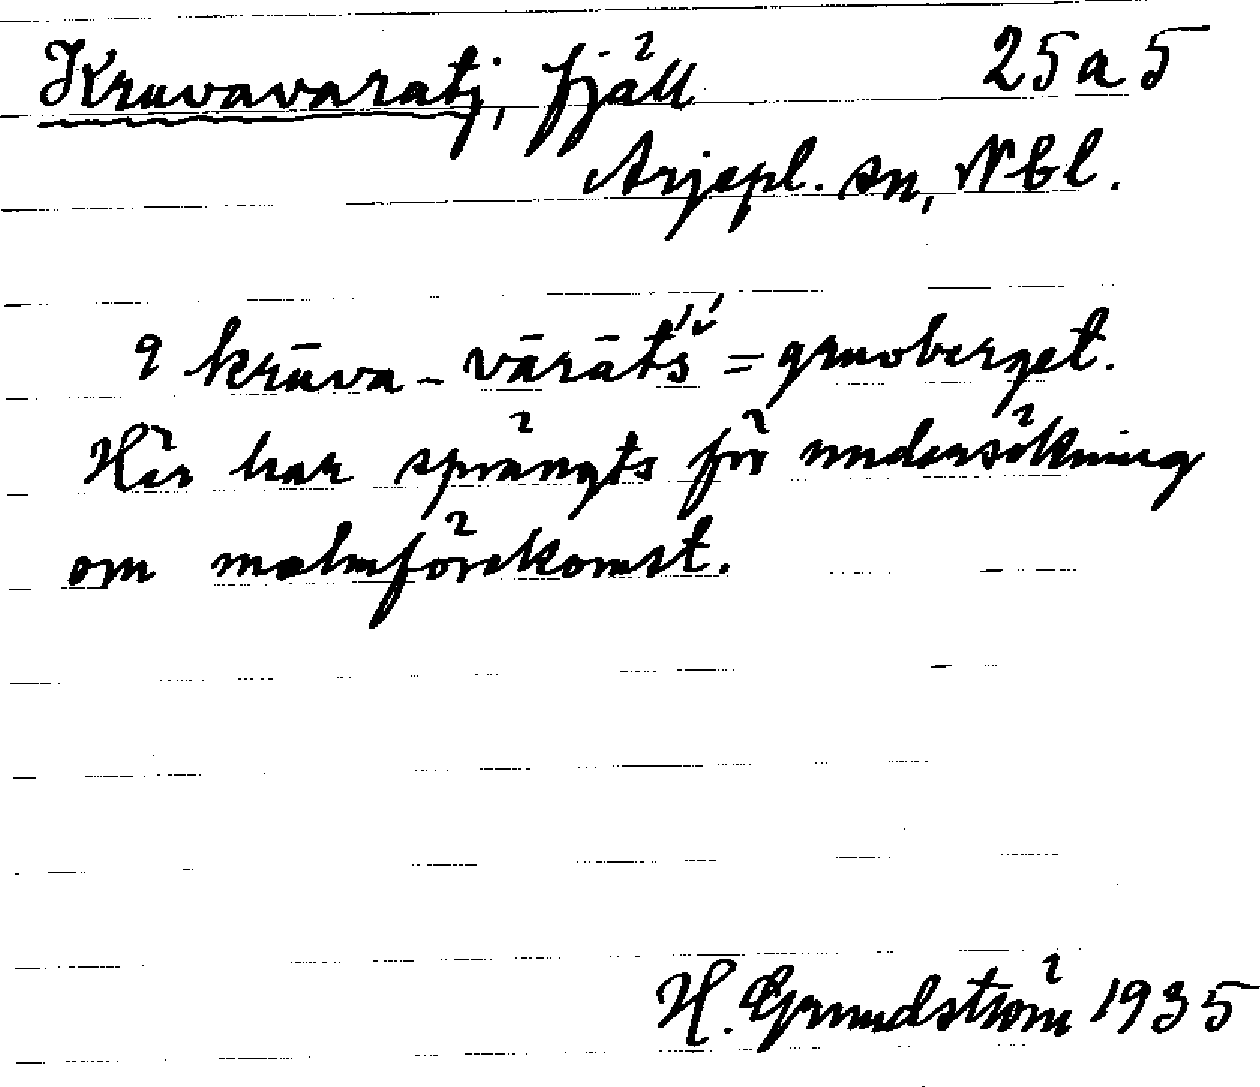 Kruvavaratj, fjäll 25 a 5
Arjepl. sn, Nbl.
krūva-vārātš = gruvberget.
Här har sprängts för undersökning
om malmförekomst.
H. Grundström 1935